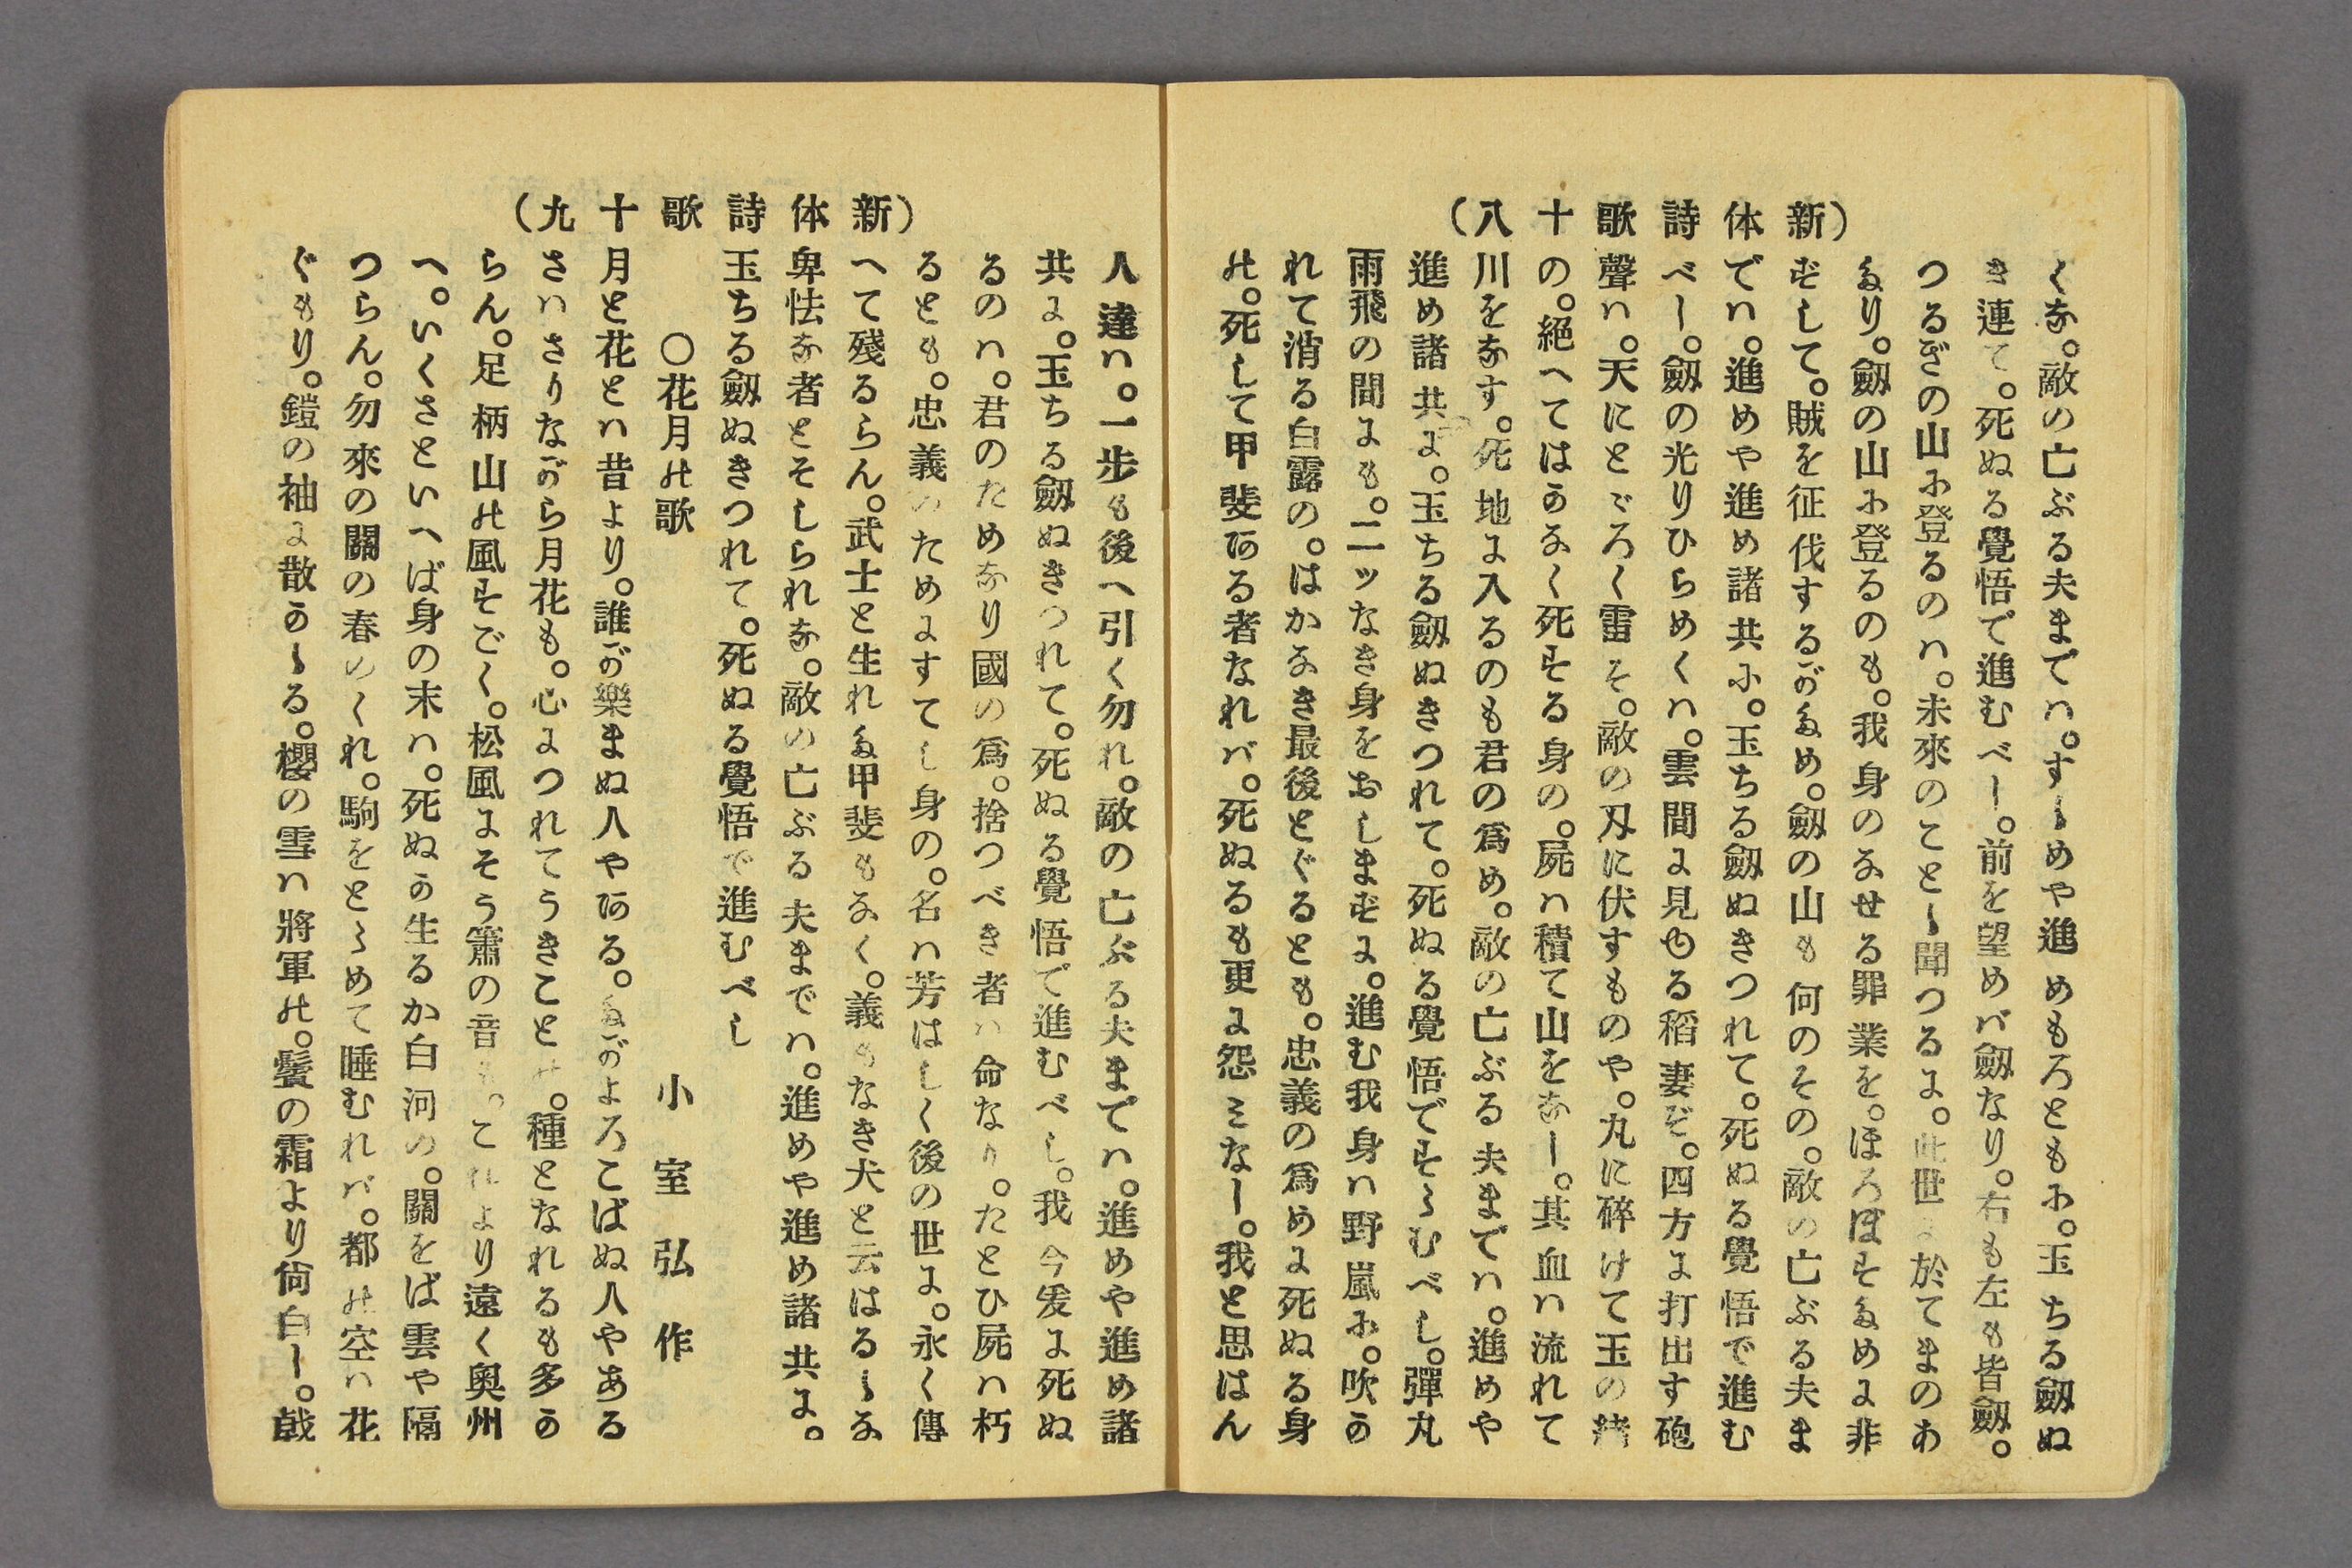 (新体詩歌十八)
くな。敵の亡ぶる夫までハ。すゝめや進めもろともに。玉ちる劔ぬ
き連て。死ぬる覺悟で進むべし。前を望めバ劔なり。右も左も皆劔。
つるぎの山に登るのハ。未來のことゝ聞つるに。此世に於てまのあ
たり。劔の山に登るのも。我身のなせる罪業を。ほろぼすために非
ずして。賊を征伐するがため。劔の山も何のその。敵の亡ぶる夫ま
でハ。進めや進め諸共に。玉ちる劔ぬきつれて。死ぬる覺悟で進む
べし。劔の光りひらめくハ。雲間に見ゆる稻妻ぞ。四方に打出す砲
聲ハ。天にとゞろく雷そ。敵の刄に伏すものや。丸に碎けて玉の緒
の。絕へてはかなく死する身の。屍ハ積て山をなし。其血ハ流れて
川をなす。死地に入るのも君の爲め。敵の亡ぶる夫までハ。進めや
進め諸共に。玉ちる劔ぬきつれて。死ぬる覺悟ですゝむべし。彈丸
雨飛の間にも。二ッなき身をおしまずに。進む我身ハ野嵐に。吹か
れて消る白露の。はかなき最後とぐるとも。忠義の爲めに死ぬる身
の。死して甲斐ある者なれバ。死ぬるも更に怨ミなし。我と思はん
(新体詩歌十九)
人達ハ。一步も後へ引く勿れ。敵の亡ぶる夫までハ。進めや進め諸
共に。玉ちる劔ぬきつれて。死ぬる覺悟で進むべし。我今爰に死ぬ
るのハ。君のためなり國の爲。捨つべき者ハ命なり。たとひ屍ハ朽
るとも。忠義のためにすてし身の。名ハ芳はしく後の世に。永く傳
へて殘るらん。武士と生れた甲斐もなく。義もなき犬と云はるゝな
卑怯な者とそしられな。敵の亡ぶる夫までハ。進めや進め諸共に。
玉ちる劔ぬきつれて。死ぬる覺悟で進むべし
〇花月の歌 小室弘作
月と花とハ昔より。誰が樂まぬ人やある。たがよろこばぬ人やある
さハさりながら月花も。心につれてうきことの。種となれるも多か
らん。足柄山の風すごく。松風にそう簫の音も。これより遠く奧州
へ。いくさといへば身の末ハ。死ぬか生るか白河の。關をば雲や隔
つらん。勿來の關の春のくれ。駒をとゝめて睡むれバ。都の空ハ花
ぐもり。鎧の袖に散かゝる。櫻の雪ハ將軍の。鬢の霜より尙白し。戟